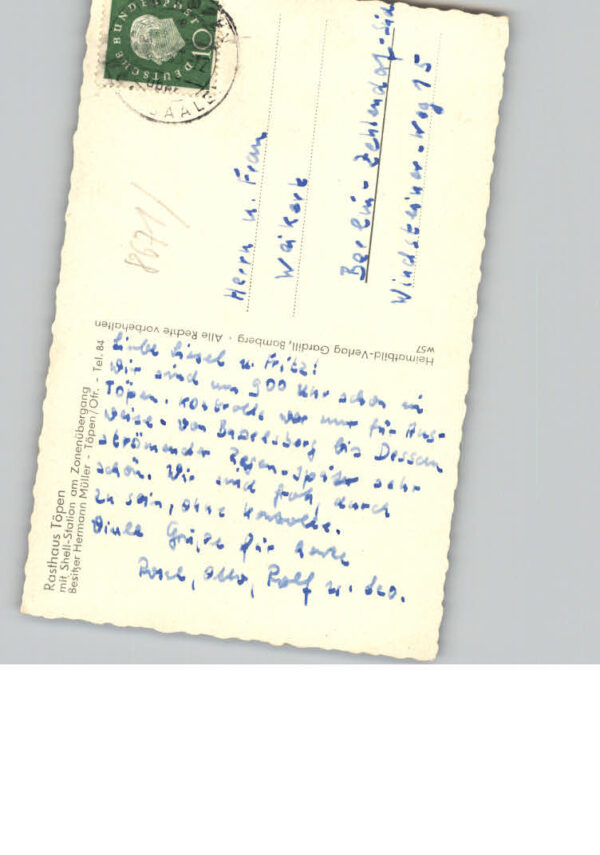 DEUTSCHE BUNDESPOST
10
SAALE
8671/
Herrn u. Frau
Weikert
Berlin-Zehlendorf-Süd
Windsteiner-Weg 15
Heimatbild-Verlag Gardill, Bamberg · Alle Rechte vorbehalten
W57
Rasthaus Töpen
mit Shell-Station am Zonenübergang
Besitzer Hermann Müller - Töpen/Ofr. - Tel. 84
Liebe Liesel u. Fritz!
Wir sind um 900 Uhr schon in
Töpen. Kontrolle war nur für Aus-
weise. Von bis Dessau
strömender Regen. Später sehr
schön. Wir sind froh, durch
zu sein, ohne Kontrolle.
Viele Grüße für heute
Otto, Rolf u.